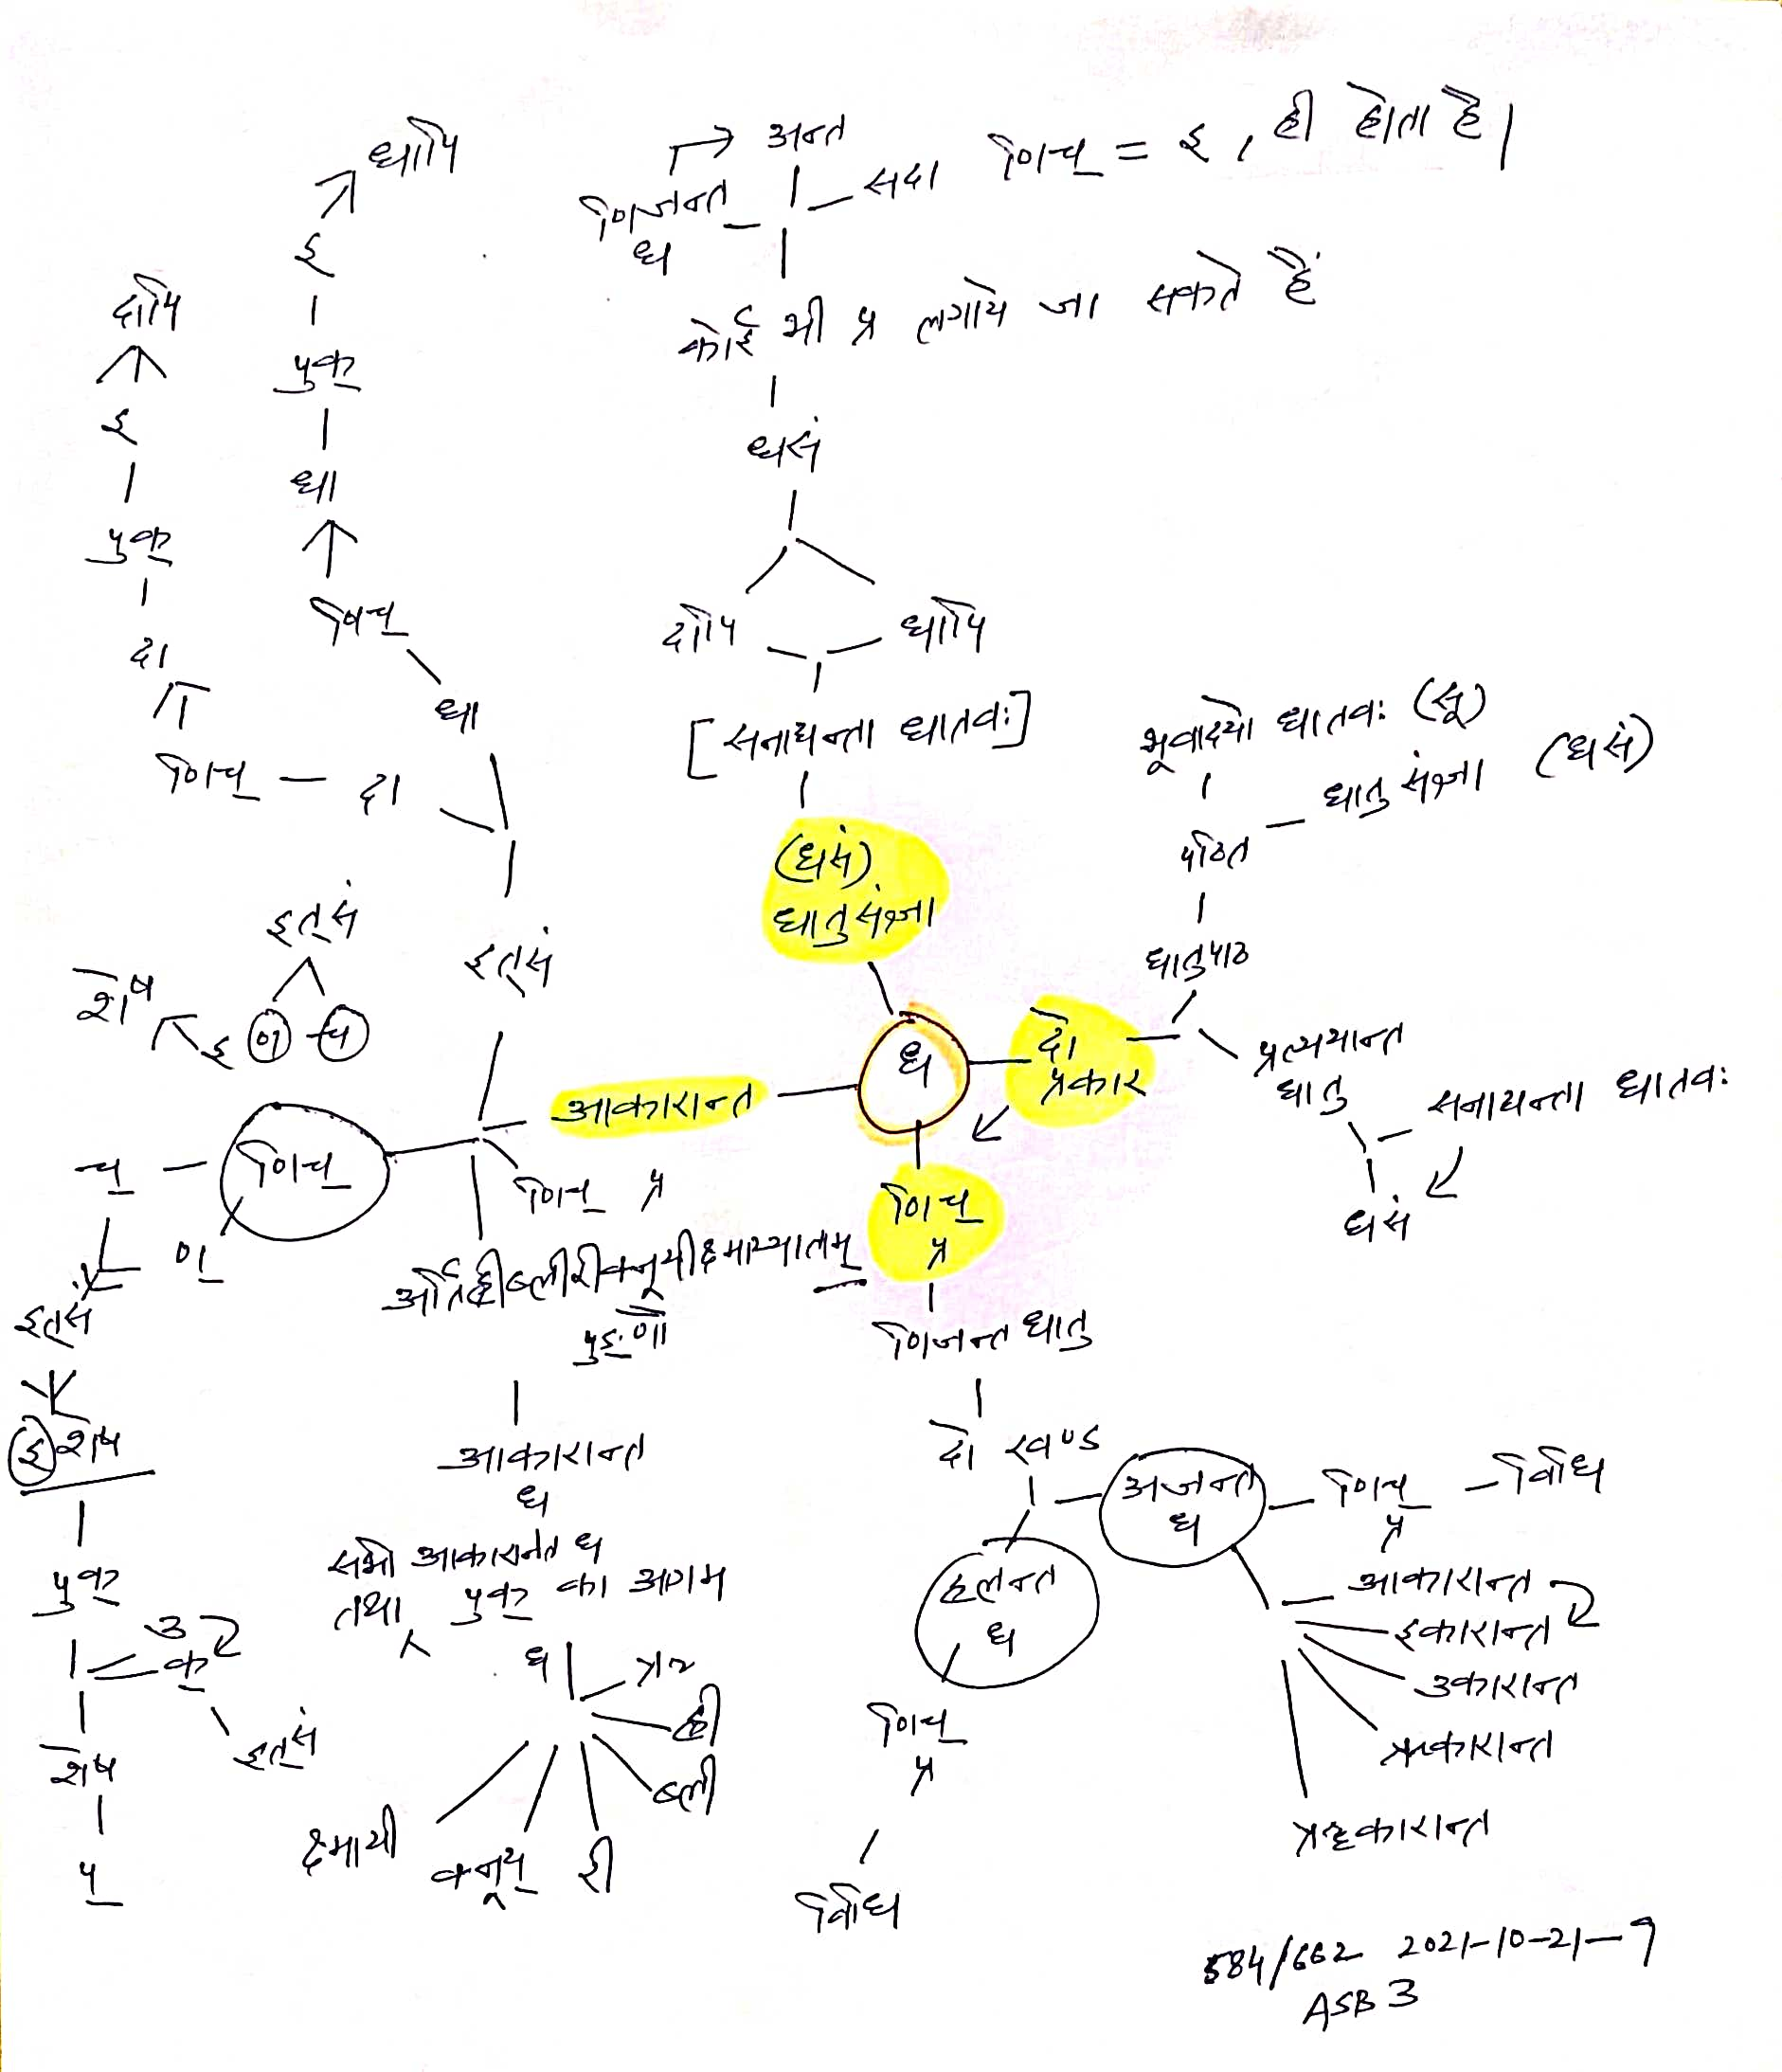 धापि
अन्त
णिजन्त
ध
सदा णिच् = इ, ही होता है।
इ
कोई भी प्र लगाये जा सकते हैं
दापि
पुक्
इ
धसं
धा
पुक्
णिच्
दापि
धापि
दा
धा
[सनाद्यन्ता धातवः]
भूवादयो धातवः (सू)
णिच् — दा
पठित — धातु संज्ञा (धसं)
(धसं)
धातु संज्ञा
इत्सं
इत्सं
धातुपाठ
शेष
इ ण् च्
ध
दो
प्रकार
प्रत्ययान्त
धातु
आकारान्त
सनाद्यन्ता धातवः
च् — णिच्
णिच् प्र
णिच्
प्र
धसं
ण्
अर्तिह्रीब्लीरीक्नूयीक्ष्माय्याताम्
पुङ् णौ
इत्सं
णिजन्त धातु
इ शेष
आकारान्त
ध
दो खण्ड
अजन्त
ध
णिच्
प्र
— विधि
सभी आकारान्त ध
तथा पुक् का आगम
पुक्
हलन्त
ध
आकारान्त
इकारान्त
उकारान्त
ऋकारान्त
ॠकारान्त
उ
क्
इत्सं
ध
ऋ
ह्री
ब्ली
री
क्नूय्
क्ष्मायी
शेष
प्
णिच्
प्र
विधि
584/662 2021-10-21-9
ASB 3